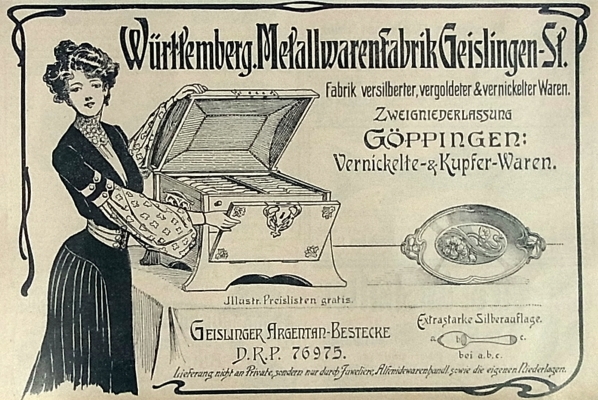 Württemberg. Metallwarenfabrik Geislingen-St.
Fabrik versilberter, vergoldeter & vernickelter Waren.
Zweigniederlassung
Göppingen:
Vernickelte- & Kupfer-Waren.
Jllustr. Preislisten gratis.
Geislinger Argentan-Bestecke
D.R.P. 76975.
Extrastarke Silberauflage.
a. b. c.
bei a.b.c.
Lieferung nicht an Private, sondern nur durch Juweliere, Alfenidewarenhandl. sowie die eigenen Niederlagen.